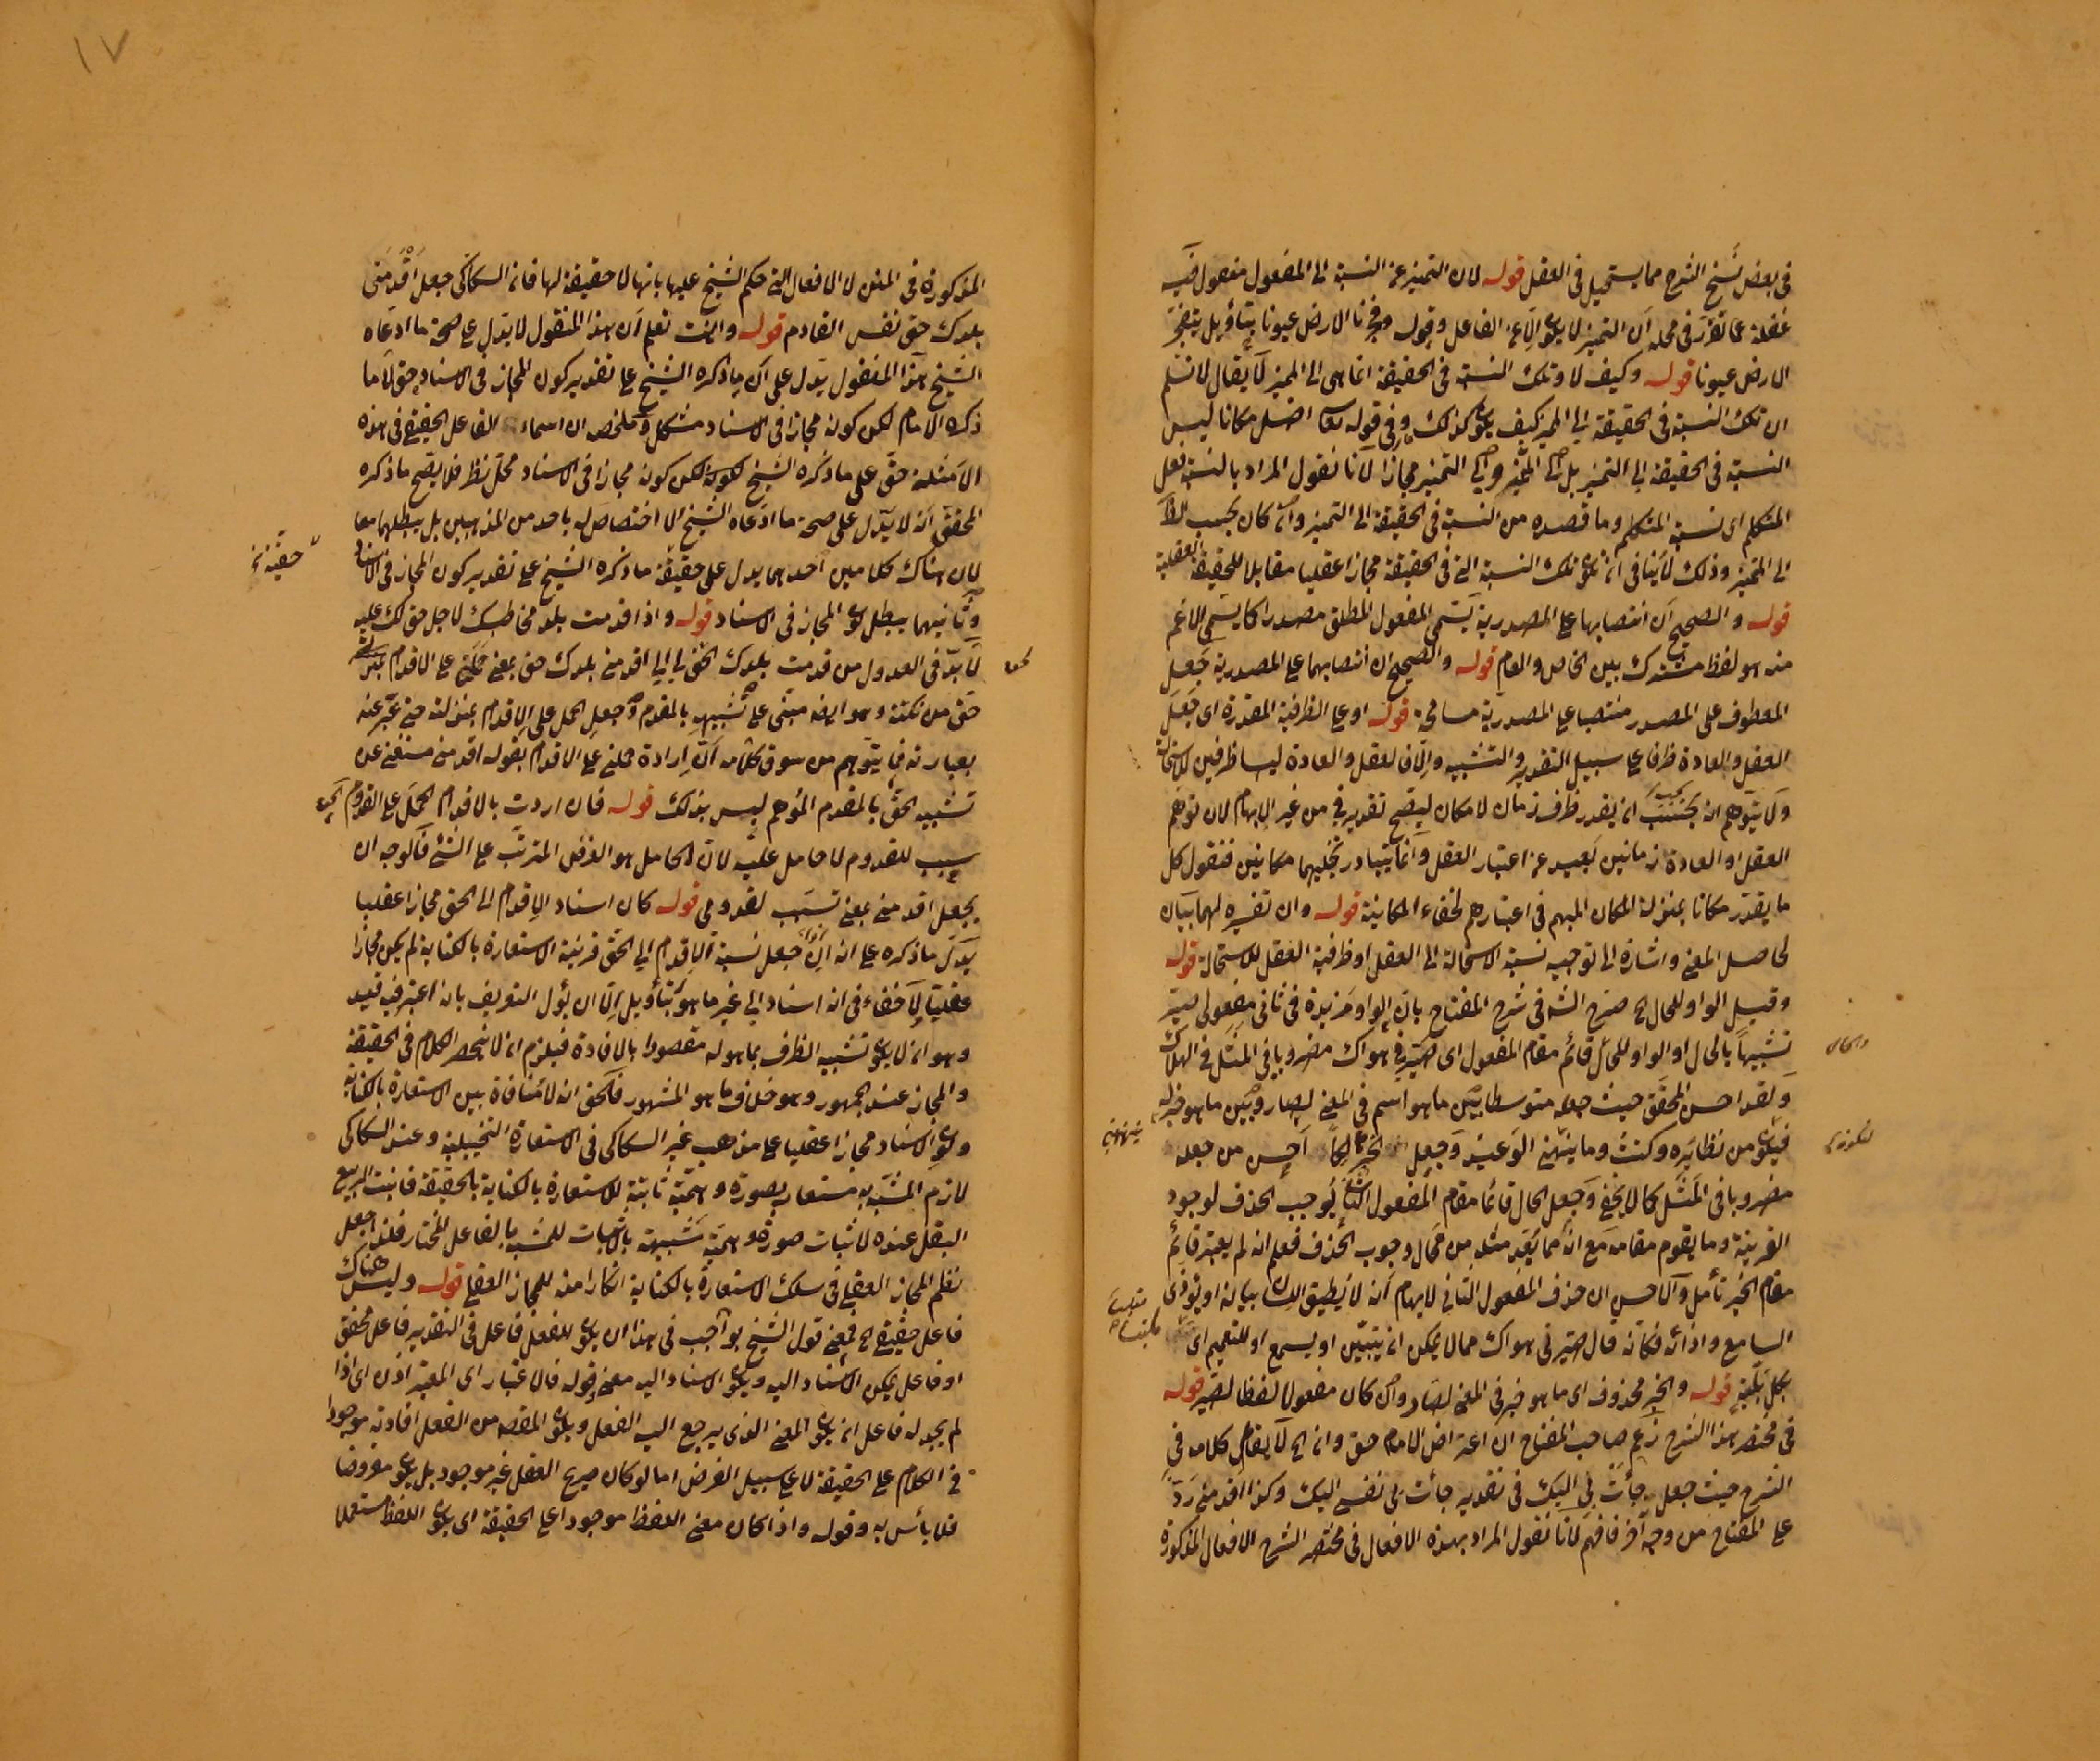 في بعض نسخ الشرح مما يستحيل في العقل قوله لان التميز عن النسبة الى المفعول مفعول فيه
غفلة عما تقرر في محله ان التميز لا يكون الا عن الفاعل وقوله وفجرنا الارض عيونا بتأويل يتفجر
الارض عيونا قوله وكيف لا وتلك النسبة في الحقيقة انما هي الى المميز لا يقال لا نسلم
ان تلك النسبة في الحقيقة الى المميز كيف يكون كذلك وفي قوله تعالى اضل مكانا ليس
النسبة في الحقيقة الى التميز بل الى المميز والى التميز مجازا لانا نقول المراد بالنسبة فعل
المتكلم اى نسبة المتكلم وما قصده من النسبة في الحقيقة الى التميز وان كان بحسب الظاهر
الى المميز وذلك لا ينافي ان تكون تلك النسبة التي في الحقيقة مجازا عقليا مقابلا للحقيقة العقلية
قوله والصحيح ان انتصابها على المصدرية يسمى المفعول المطلق مصدرا كما يسمى الاعم
منه هو لفظ مشترك بين الخاص والعام قوله والصحيح ان انتصابهما على المصدرية جعل
المعطوف على المصدر منتصبا على المصدرية مسامحة قوله او على الظرفية المقدرة اى جعل
العقل والعادة ظرفا على سبيل التقدير والتشبيه والا فالعقل والعادة ليسا ظرفين للاستحالة
ولا يتوهم انه يجب ان يقدر ظرف زمان لا مكان ليصح تقدير في من غير الابهام لان توهم
العقل او العادة زمانين بعيد عن اعتبار العقل وانما يتبادر تخيلهما مكانين فنقول كل
ما يقدر مكانا بمنزلة المكان المبهم في اعتبارهم لخفاء المكانية قوله وان تفسيره لهما بيان
لحاصل المعنى واشارة الى توجيه نسبة الاستحالة الى العقل او ظرفية العقل للاستحالة قوله
وقيل الواو للحال الخ صرح الشـ في شرح المفتاح بان الواو مزيدة في ثاني مفعولى صير
تشبيها بالحال او الواو للحال قائم مقام المفعول اى صيرني هواك مضروبا في المثل في الهلاك
ولقد احسن المحقق حيث جعله متوسطا بين ما هو اسم في المعنى لصار وبين ما هو خبر له
فيكون من نظائره وكنت وما ينهنهني الوعيد وجعل الخبر احسن من جعله
مضروبا في المثل كما لا يخفى وجعل الحال قائما مقام المفعول الثاني يوجب الحذف لوجود
القرينة وما يقوم مقامه مع انه مما يفيد مثله من محال وجوب الحذف فعلم انه لم يعتبر قائم
مقام الخبر تأمل والاحسن ان حذف المفعول الثاني لايهام انه لا يطيق اللسان بيانه او يؤذى
السامع واذائه فكأنه قال صيرني هواك مما لا يمكن ان يتبين او يسمع او للتعميم اى
بكل بلية قوله والخبر محذوف اى ما هو خبر في المعنى لصار وان كان مفعولا لفظا لصير قوله
في مختصر هذا الشرح زعم صاحب المفتاح ان اعتراض الامام حق وانه الخ لا يقال كلامه في
الشرح حيث جعل جأت بي اليك في تقدير جأت بي نفسي اليك وكذا اقدمني رد
على المفتاح من وجه آخر فافهم لانا نقول المراد بهذه الافعال في مختصر الشرح الافعال المذكورة
والحال
ينهنهني
١٧
المذكورة في المتن لا الافعال التي حكم الشيخ عليها بانها لا حقيقة لها فان السكاكي جعل اقدمني
بلدك حق نفس القادم قوله وانت تعلم ان هذا المنقول لا يدل على صحة ما ادعاه
الشيخ هذا المنقول يدل على ان ما ذكره الشيخ على تقدير كون المجاز في الاسناد حق لا ما
ذكره الامام لكن كونه مجازا في الاسناد مشكل وملخصه ان اسماء الفاعل الحقيقي في هذه
الامثلة حق على ما ذكره الشيخ لكونه لكن كونه مجازا في الاسناد محل نظر فلا يصح ما ذكره
المحقق انه لا يدل على صحة ما ادعاه الشيخ اذ لا اختصاص له باحد من المذهبين بل يبطلهما معا
لان هناك كلامين احدهما يدل على حقيقة ما ذكره الشيخ على تقدير كون المجاز في الاسناد
وثانيهما يبطل كون المجاز في الاسناد قوله واذا قدمت بلد مخاطبك لاجل حق لك عليه
لا بد في العدول من قدمت بلدك لحق لي الى اقدمني بلدك حق بمعنى حملني على الاقدام
حق من نكتة وهو ايضا مبنى على تشبيهه بالمقدم وجعل الحمل على الاقدام بمنزلته حتى عبر عنه
بعبارته فما يتوهم من سوق كلامه ان ارادة حملني على الاقدام بقوله اقدمني مستغن عن
تشبيه الحق بالمقدم الموهم ليس بذلك قوله فان اردت بالاقدام الحمل على القدوم
سبب للقدوم لا حامل عليه لان الحامل هو الغرض المترتب على الشئ فالوجه ان
يجعل اقدمني بمعنى تسبب لقدومي قوله كان اسناد الاقدام الى الحق مجازا عقليا
يدل ما ذكره على انه اذا جعل نسبة الاقدام الى الحق قرينة الاستعارة بالكناية لم يكن مجازا
عقليا لا خفاء في انه اسناد الى غير ما هو بتأويل الا ان يؤل التعريف بانه اعتبر فيه قيد
وهو ان لا يكون تشبيه الظرف بما هو له مقصودا بالافادة فيلزم ان لا ينحصر الكلام في الحقيقة
والمجاز عند الجمهور وهو خلاف ما هو المشهور فالحق انه لا منافاة بين الاستعارة بالكناية
وكون الاسناد مجازا عقليا على مذهب غير السكاكي في الاستعارة التخييلية وعند السكاكي
لازم المشبه به مستعار بصورة وهمية ثابتة للاستعارة بالكناية بالحقيقة فانبت الربيع
البقل عنده لاثبات صورة وهمية شبيهة بالانبات للمشبه بالفاعل المختار فلذا جعل
نظم المجاز العقلي في سلك الاستعارة بالكناية انكارا منه للمجاز العقلي قوله وليس هناك
فاعل حقيقي الخ فمعنى قول الشيخ بواجب في هذا ان يكون للفعل فاعل في التقدير فاعل محقق
او فاعل يمكن الاسناد اليه ويكون الاسناد اليه معنى قوله فالاعتبار اى المعتبر اذن اى اذا
لم يجد له فاعل ان يكون المعنى الذى يرجع اليه الفعل ويكون المقصد من الفعل افادته موجودا
في الكلام على الحقيقة لا على سبيل الفرض اما لو كان صريح الفعل غير موجود بل يكون مفروضا
فلا بأس به وقوله واذا كان معنى اللفظ موجودا على الحقيقة اى يكون اللفظ مستعملا